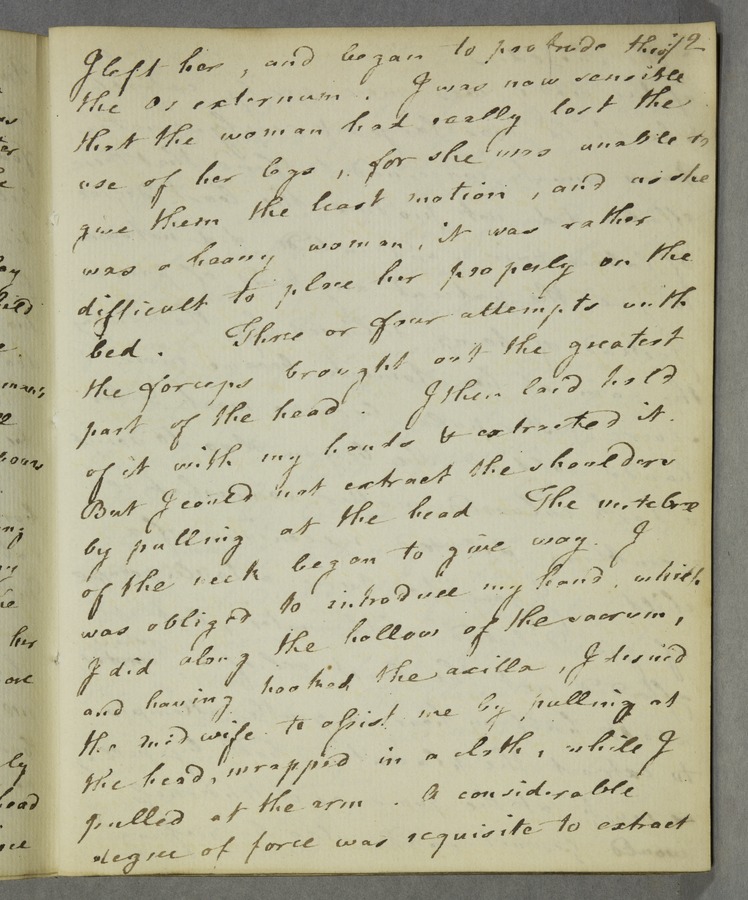 I left her, and began to protrude thro' 12
the Os externum. I was now sensible
that the woman had really lost the
use of her legs, for she was unable to
give them the least motion, and as she
was a heavy woman, it was rather
difficult to place her properly on the
bed. Three or four attempts with
the forceps brought out the greatest
part of the head. I then laid hold
of it with my hands & extracted it.
But I could not extract the shoulders
by pulling at the head The vertebræ
of the neck began to give way. I
was obliged to introduce my hand, which
I did along the hollow of the sacrum,
and having hooked the axilla, I desired
the midwife to assist me by pulling at
the head, wrapped in a cloth, while I
pulled at the arm. A considerable
degree of force was requisite to extract